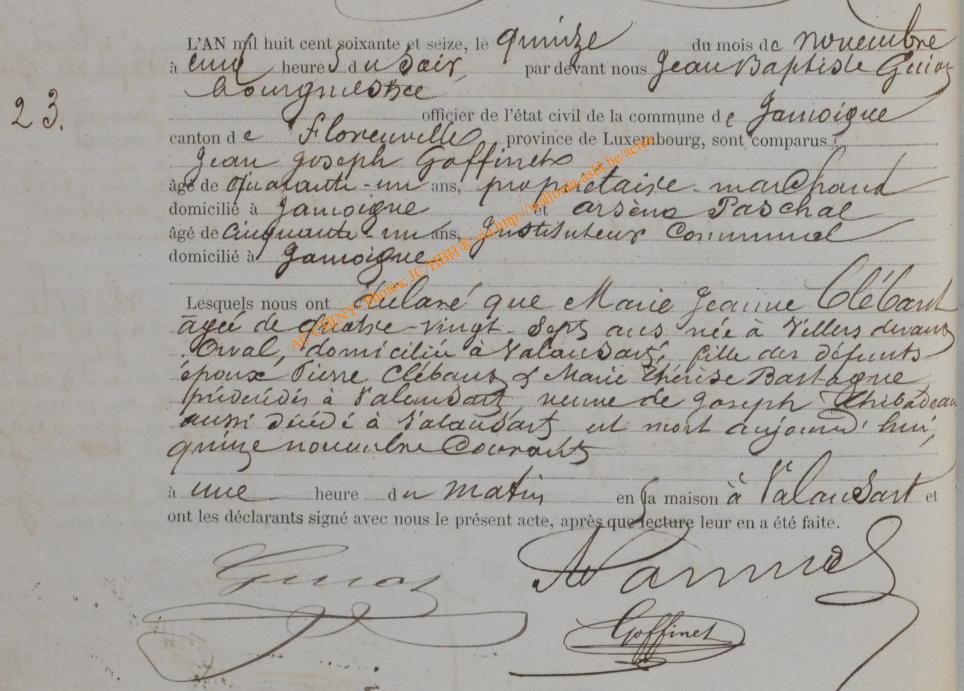 L'AN mil huit cent soixante et seize, le quinze du mois de novembre
à cinq heures du soir, par devant nous Jean Baptiste Guiot
bourgmestre
23.
officier de l'état civil de la commune de Jamoigne
canton de Florenville province de Luxembourg, sont comparus
Jean Joseph Goffinet
âgé de quarante-un ans, propriétaire-marchand
domicilié à Jamoigne et arsène Paschal
âgé de Cinquante-un ans, Instituteur Communal
domicilié à Jamoigne
Lesquels nous ont déclaré que Marie Jeanne Clébant
âgée de quatre-vingt-sept ans née à Villers devant
Orval, domiciliée à Valansart, fille des défunts
époux Pierre Clébant & Marie Thérèse Bastogne
décédés à Valansart, veuve de Joseph Thibadeau
aussi décédé à Valansart, est mort aujourd'hui,
quinze novembre Courant
à une heure du matin en sa maison à Valansart et
ont les déclarants signé avec nous le présent acte, après que lecture leur en a été faite.
Guiot
Goffinet